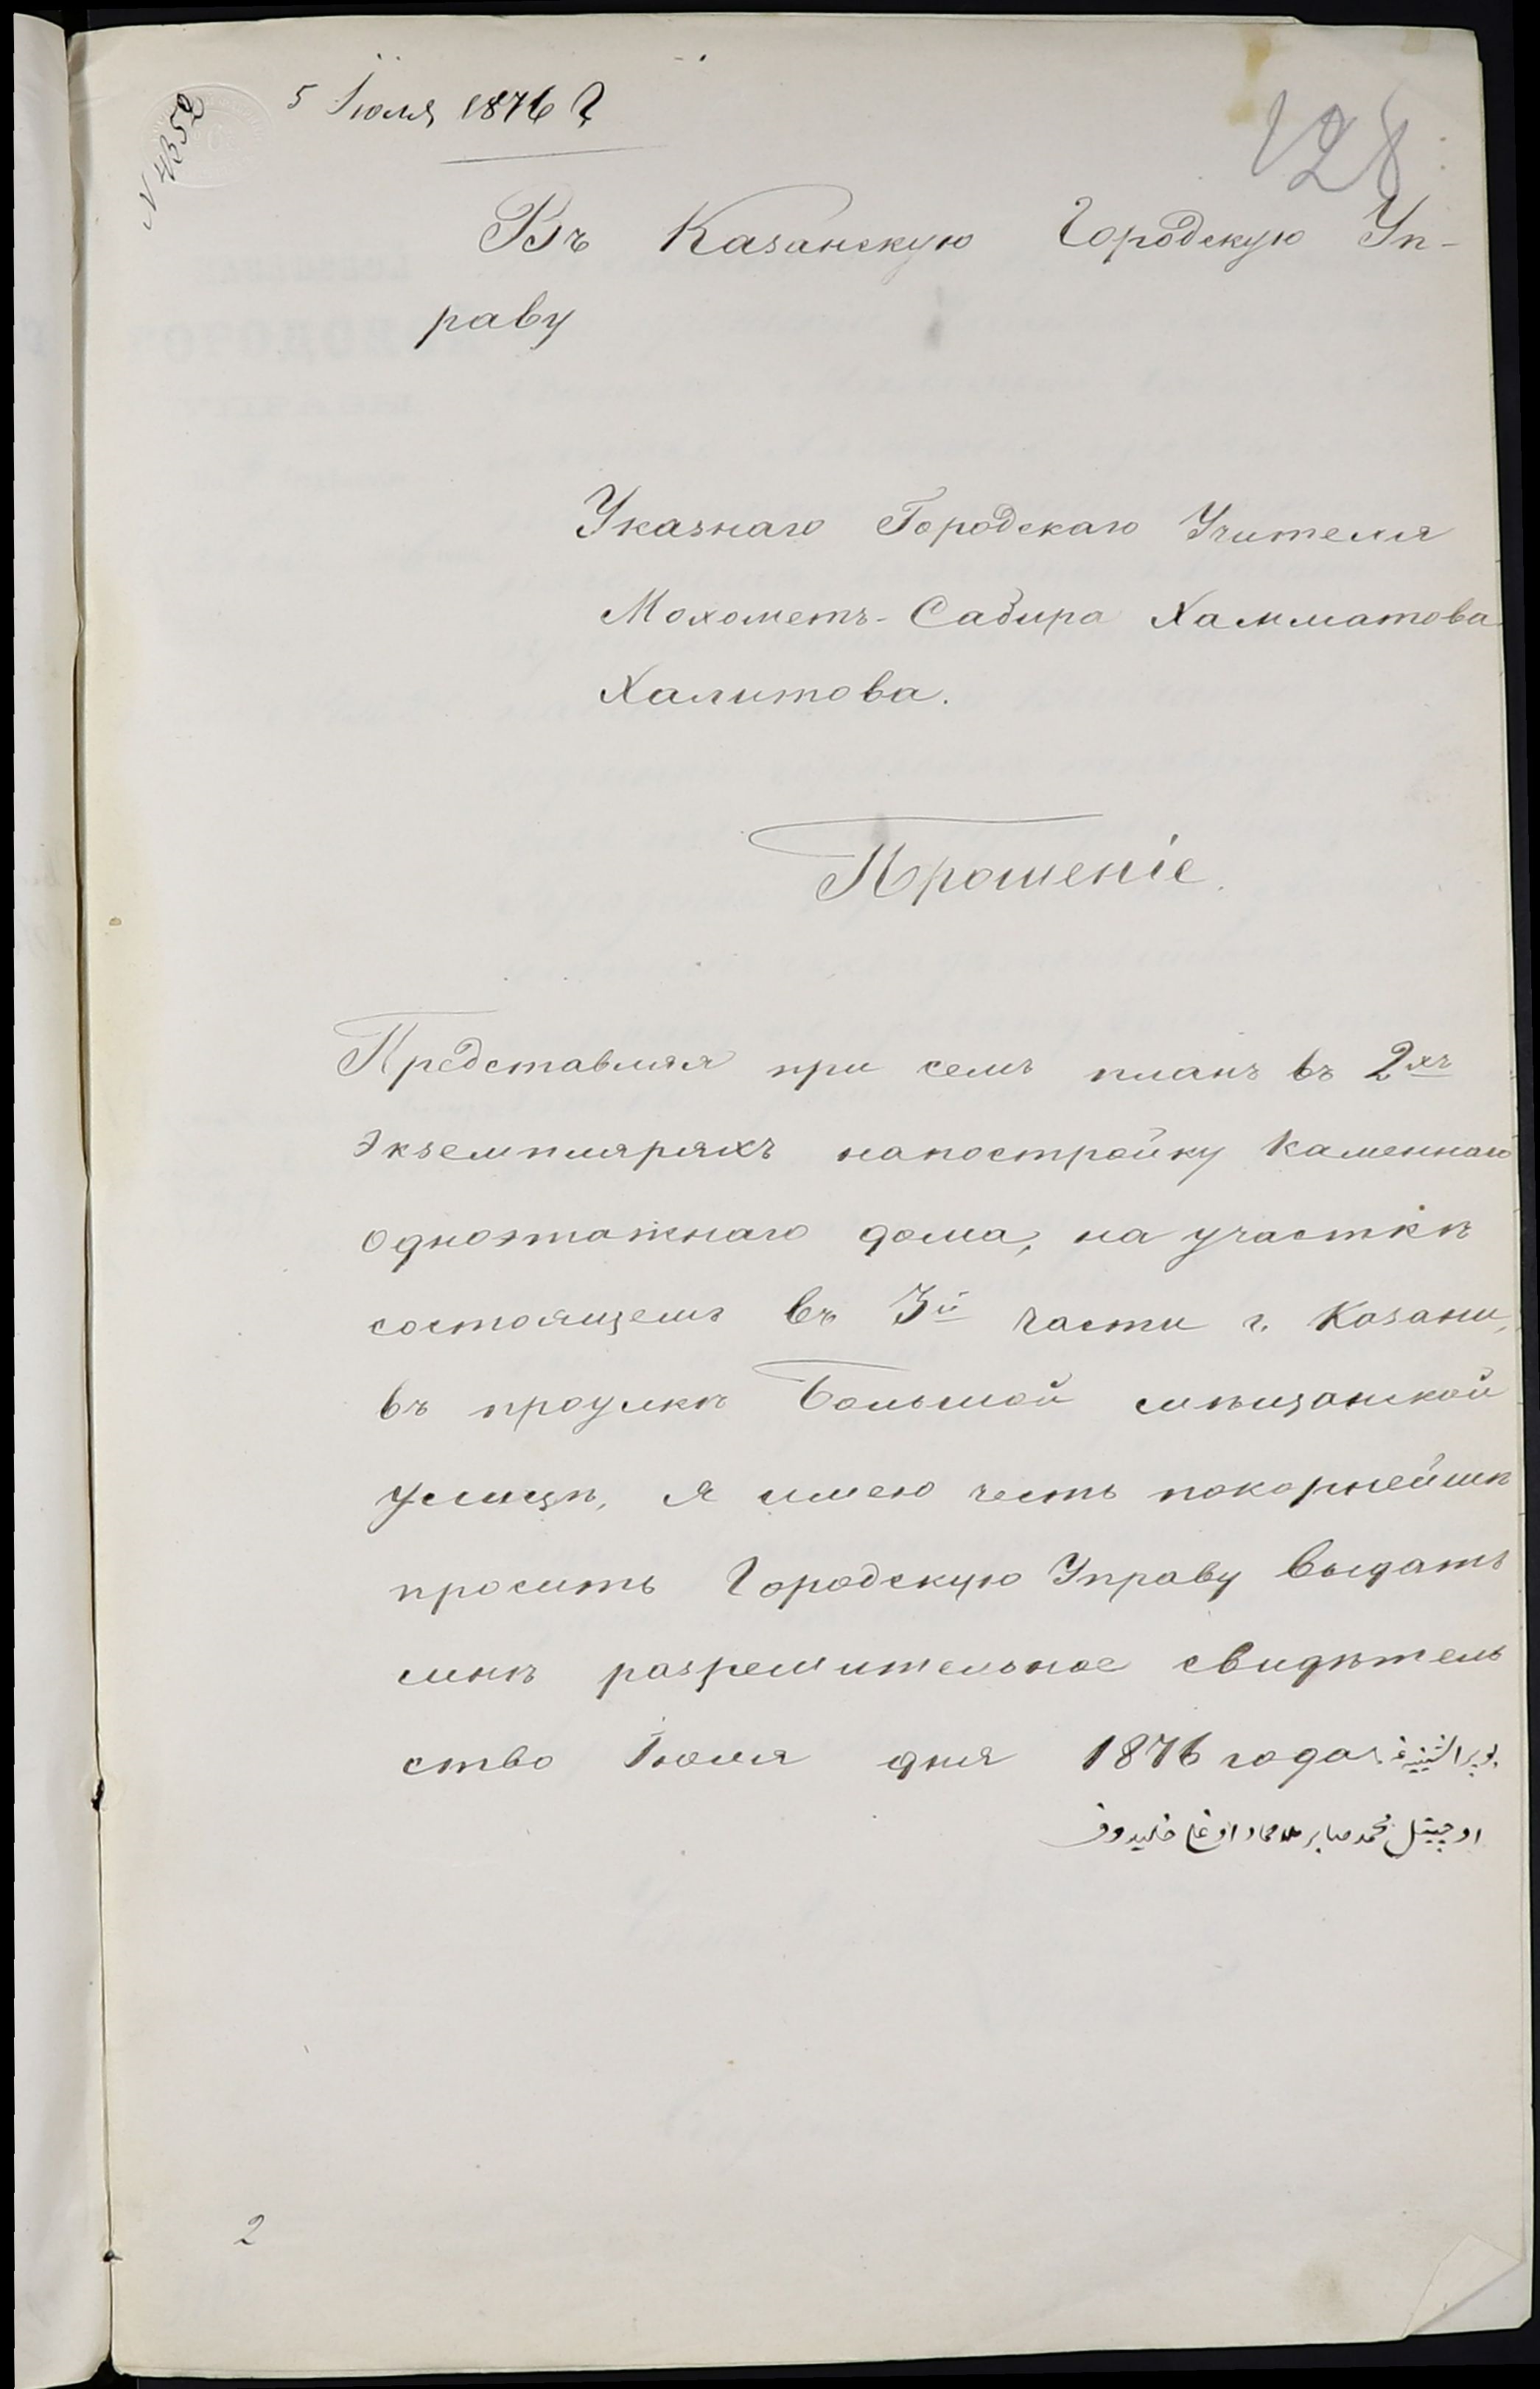 N 4352
5 Іюля 1876 г
128
Въ Казанскую Городскую Уп-
раву
Указнаго Городскаго Учителя
Мохометъ-Сабира Хамматова
Халитова.
Прошеніе.
Представляя при семъ планъ въ 2хъ
экземпляряхъ напостройку каменнаго
одноэтажнаго дома, на участкѣ
состоящемъ въ 3й части г. Казани,
въ проулкѣ Большой мѣщанской
улицѣ, я имею честь покорнейшѣ
просить Городскую Управу выдать
мнѣ разрешительное свидѣтель
ство Іюля дня 1876 года.
اوچيتل محمد صابر اوغلى خليدوف
2